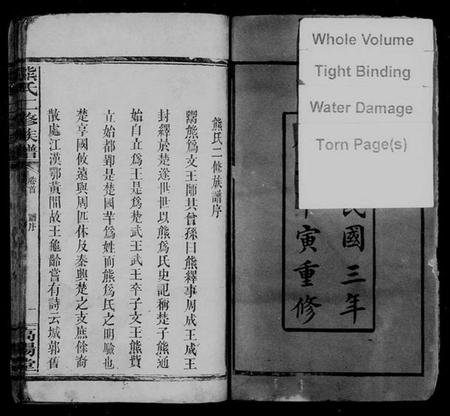 Whole Volume
Tight Binding
Water Damage
Torn Page(s)
民國三年
寅重修
熊氏二修族譜序
鬻熊爲文王師其曾孫曰熊繹事周成王成王
封繹於楚遂世世以熊爲氏史記稱楚子熊通
始自立爲王是爲楚武王武王卒子文王熊貲
立始都郢是楚國芉爲姓而熊爲氏之明驗也
楚享國攸遠與周匹休及秦興楚之支庶餘裔
散處江漢鄂黃閒故王龜齡嘗有詩云城郭舊
熊氏二修族譜
卷首
譜序
一
高陽堂